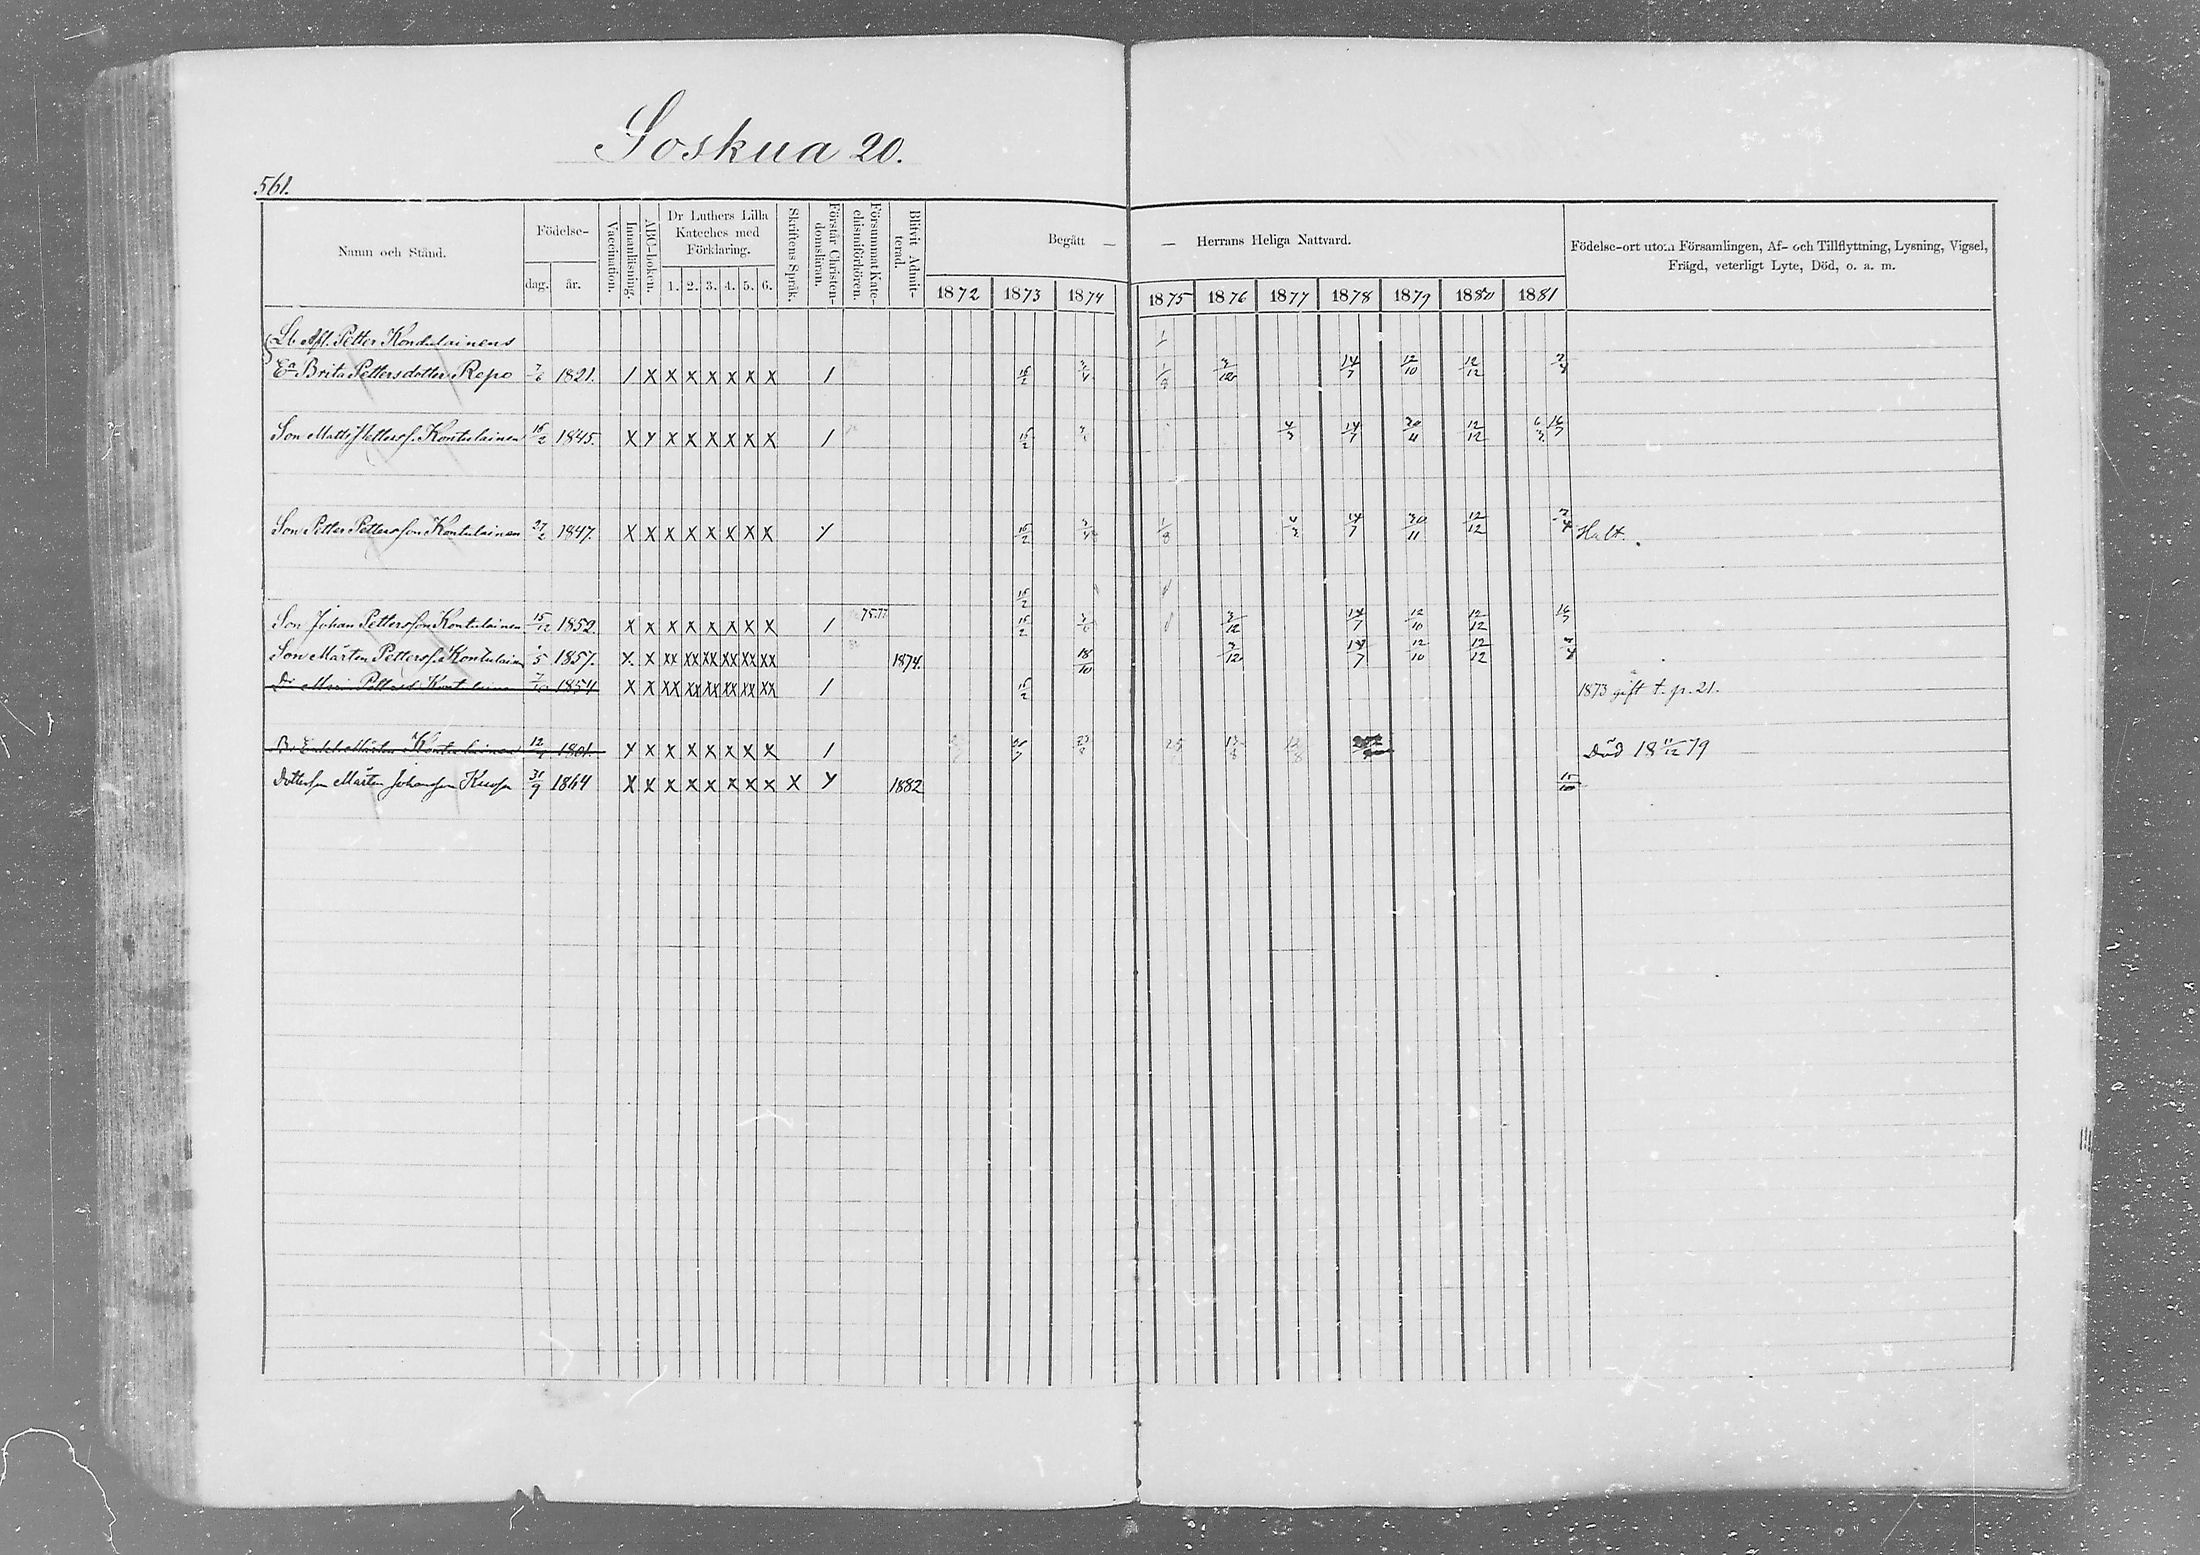 Soskua 20.
561.
Namn och Stånd.
Födelse-
dag.
år.
Vaccination.
Innanläsning.
ABC-boken.
Dr Luthers Lilla
Kateches med
Förklaring.
1. 2. 3. 4. 5. 6.
Skriftens Språk.
Förstår Christen-
domsläran.
Försummat Kate-
chismiförhören.
Blifvit Admit-
terad.
Begått — — Herrans Heliga Nattvard.
1872 1873 1874 1875 1876 1877 1878 1879 1880 1881
Födelse-ort utom Församlingen, Af- och Tillflyttning, Lysning, Vigsel,
Frägd, veterligt Lyte, Död, o. a. m.
Lb Afl. Petter Kondulainens
Ea Brita Pettersdotter Repo 7/6 1821. / X X X X X X X / 15/2 3/4 1/8 3/12 14/7 12/10 12/12 2/4
Son Matts Petterss. Kontulainen 15/2 1845. X Y X X X X X X / 15/2 4/3 14/7 30/11 12/12 6/3 16/7
Son Petter Pettersson Kontulainen 27/2 1847. X X X X X X X X Y 15/2 3/4 1/8 4/3 14/7 30/11 12/12 2/4 Halt.
15/2
Son Johan Pettersson Kontulainen 15/12 1852. X X X X X X X X / 75.77 15/2 3/12 14/7 12/10 12/12 16/7
Son Mårten Petterss. Kontulainen 5 1857. X X XX XX XX XX XX XX 1874. 18/10 3/12 14/7 12/10 12/12
Dr Maria Pettersd. Kontulainen 7/10 1854 X X XX XX XX XX XX XX / 15/2 1873 gift t. p. 21.
Mårten Kontulainen 12/ 1801. Y X X X X X X X / Död 18 11/12 79
Dotterson Mårten Johansson 31/9 1864 X X X X X X X X X Y 1882 15/10